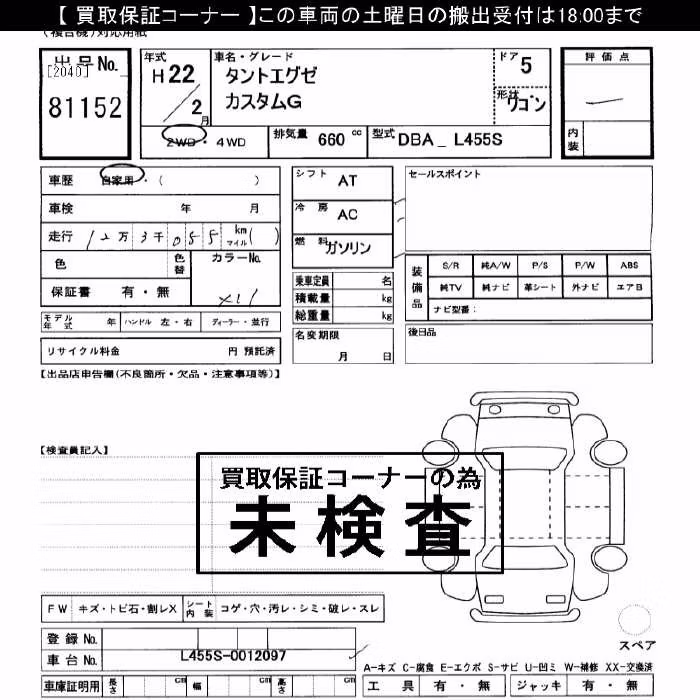 【 買取保証コーナー 】この車両の土曜日の搬出受付は18:00まで
(複合機)対応用紙
出品No.
[2040]
81152
年式
H22
／2月
車名・グレード
タントエグゼ
カスタムG
ドア 5
形状 ワゴン
評価点
内装
2WD・4WD
排気量 660 cc
型式 DBA_ L455S
車歴 自家用・( )
車検 年 月
走行 12万3千055 km マイル( )
色
色替
カラーNo.
X11
保証書 有・無
モデル年式 年 ハンドル 左・右 ディーラー・並行
リサイクル料金 円 預託済
シフト AT
冷房 AC
燃料 ガソリン
乗車定員 名
積載量 kg
総重量 kg
名変期限
月 日
セールスポイント
装備品
S/R 純A/W P/S P/W ABS
純TV 純ナビ 革シート 外ナビ エアB
ナビ型番:
後日品
【出品店申告欄(不良箇所・欠品・注意事項等)】
【検査員記入】
買取保証コーナーの為
未検査
FW キズ・トビ石・割レX シート内装 コゲ・穴・汚レ・シミ・破レ・スレ
登録No.
車台No. L455S-0012097
車庫証明用 長さ cm 幅 cm 高さ cm
スペア
A-キズ C-腐食 E-エクボ S-サビ U-凹ミ W-補修 XX-交換済
工具 有・無 ジャッキ 有・無